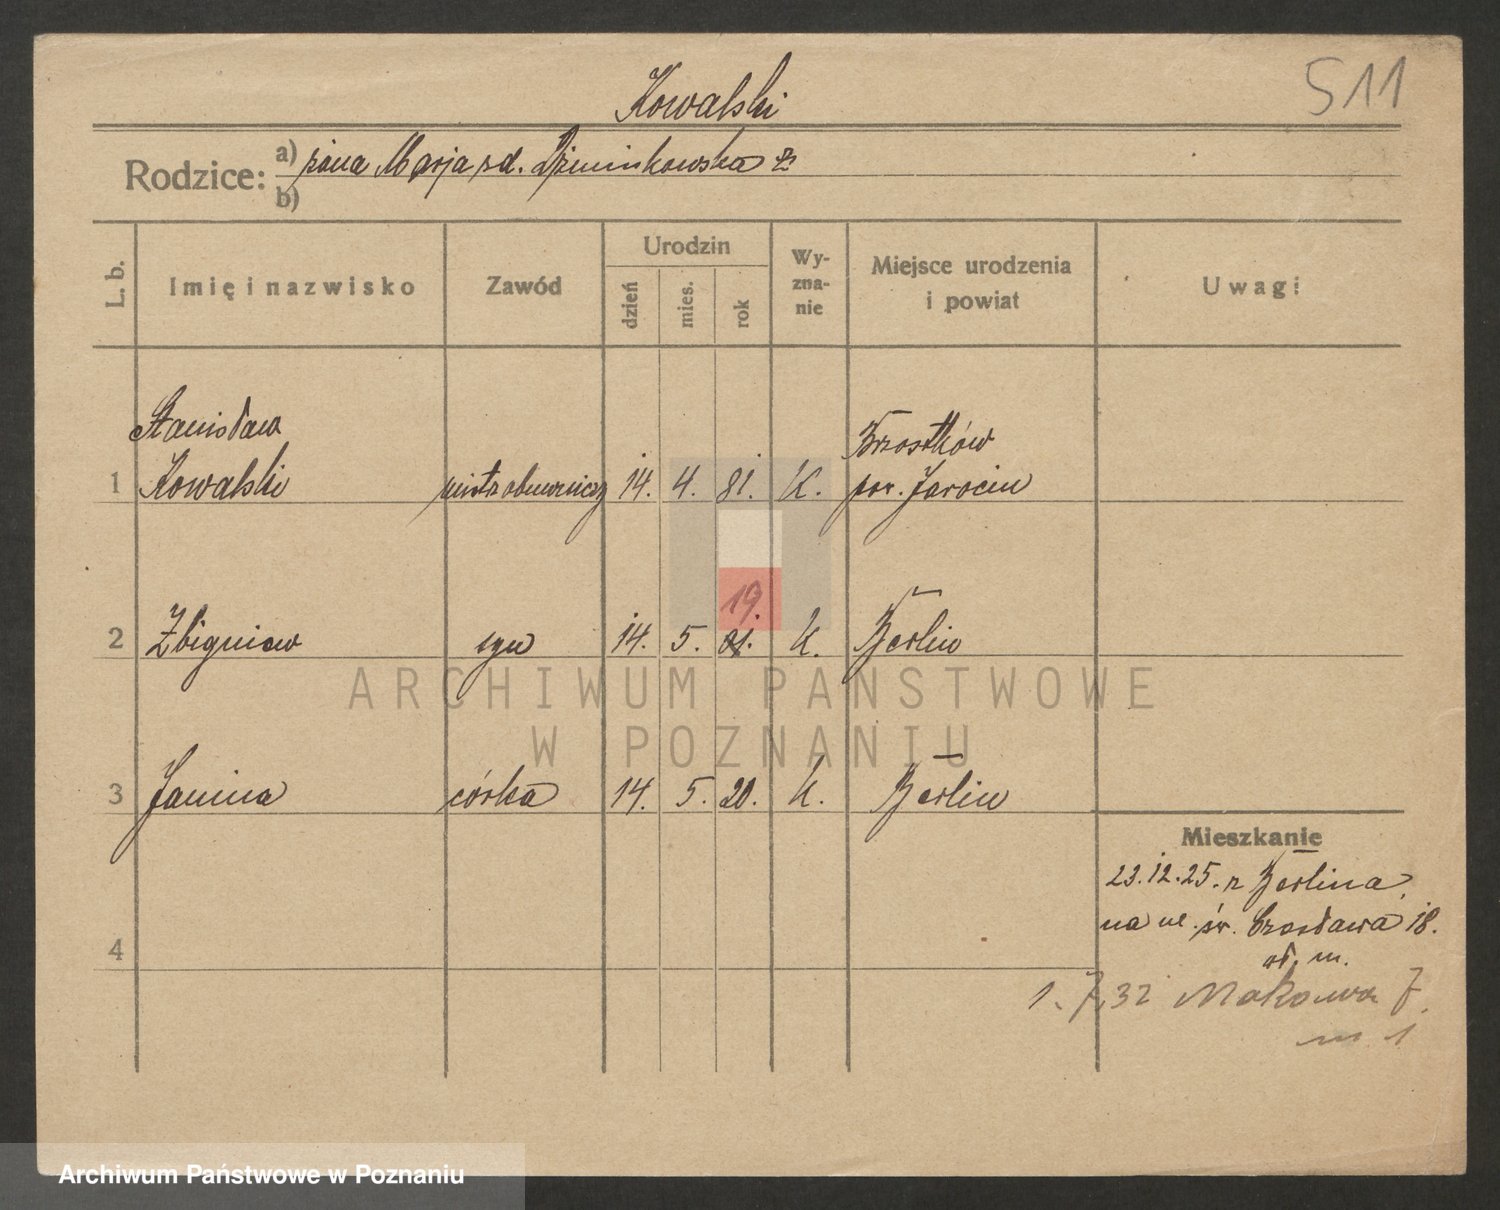 Kowalski
511
Rodzice: a) żona Marja zd.
b)
L. b.
Imię i nazwisko
Zawód
Urodzin
dzień
mies.
rok
Wy-
zna-
nie
Miejsce urodzenia
i powiat
Uwagi
Stanisław
1 Kowalski mistrz obuwniczy 14. 4. 81. K. Brzostków
pow. Jarocin
19.
2 Zbigniew syn 14. 5. K. Berlin
3 Janina córka 14. 5. 20. K. Berlin
4
Mieszkanie
23.12.25. z Berlina
na ul. św. Czesława 18.
m.
1.7.32 Makowa 7
m 1
ARCHIWUM PAŃSTWOWE
W POZNANIU
Archiwum Państwowe w Poznaniu